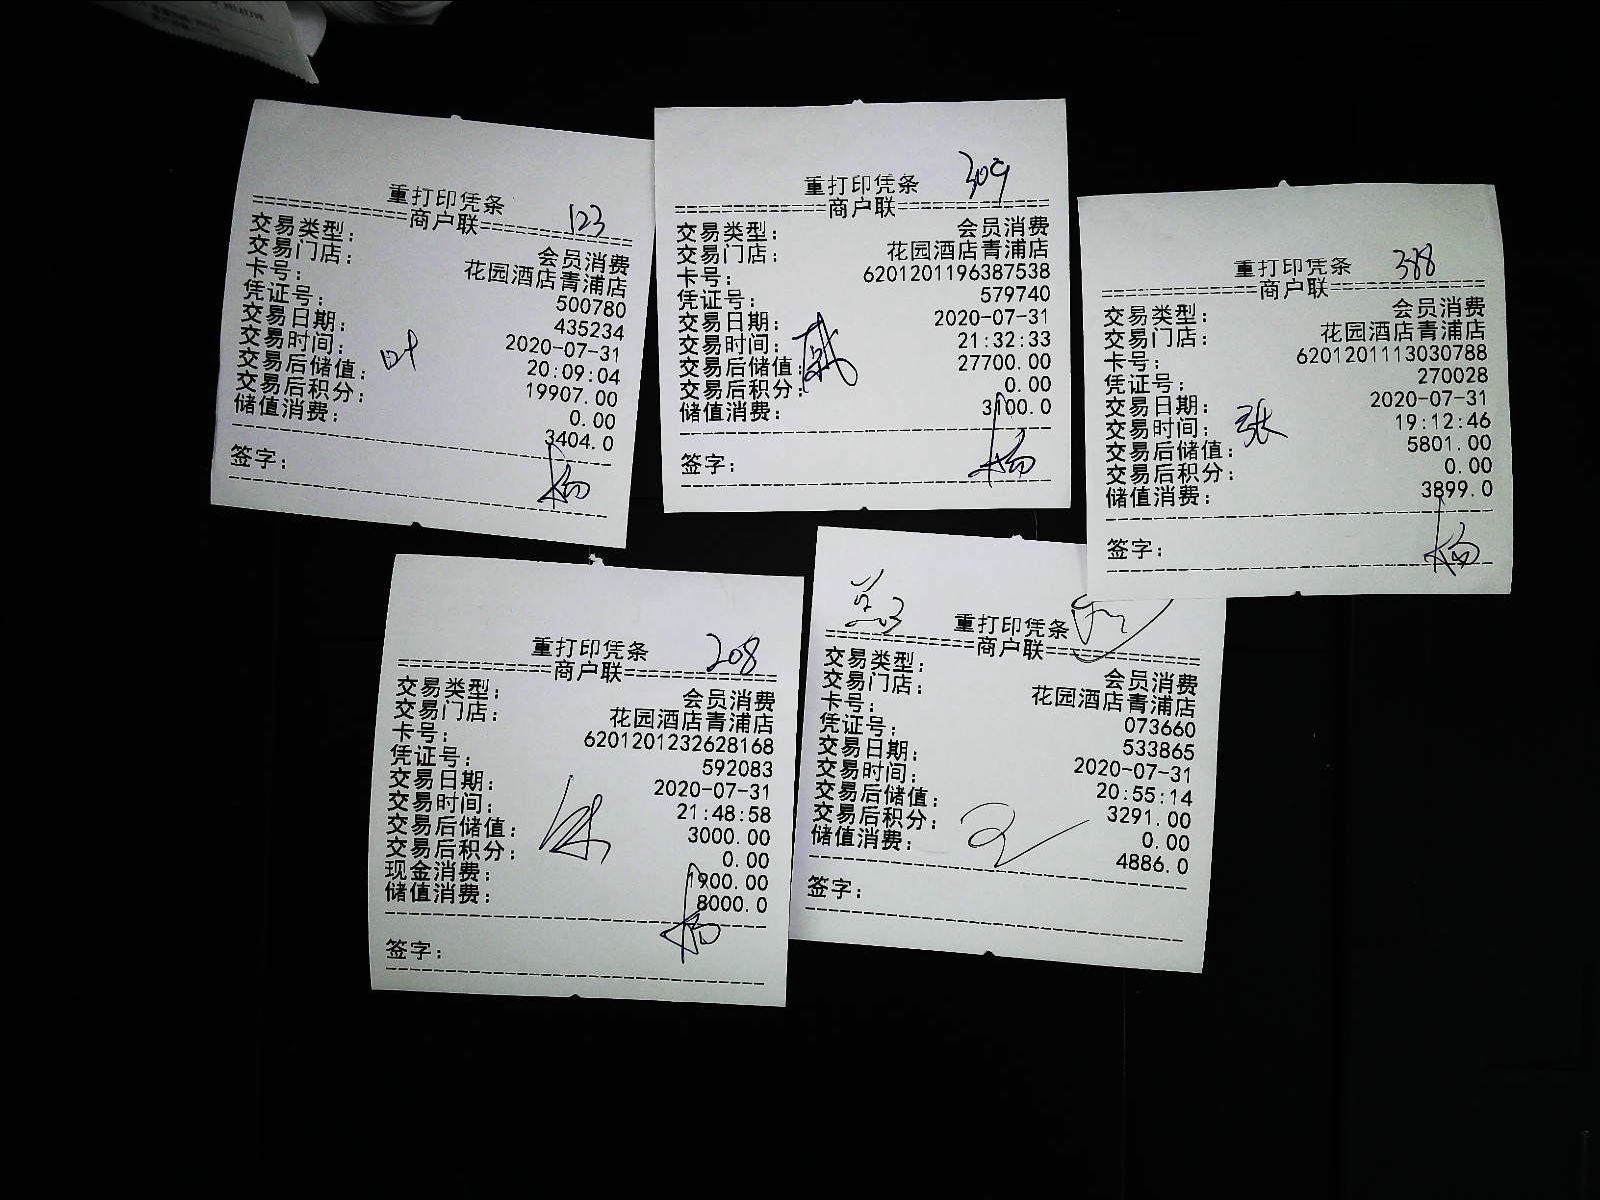 重打印凭条
123
商户联
交易类型: 会员消费
交易门店: 花园酒店青浦店
卡号: 500780
凭证号: 435234
交易日期: 2020-07-31
交易时间: 20:09:04
交易后储值: 19907.00
交易后积分: 0.00
储值消费: 3404.0
叶
签字:
杨
重打印凭条
309
商户联
交易类型: 会员消费
交易门店: 花园酒店青浦店
卡号: 6201201196387538
凭证号: 579740
交易日期: 2020-07-31
交易时间: 21:32:33
交易后储值: 27700.00
交易后积分: 0.00
储值消费: 3100.0
签字:
杨
重打印凭条
388
商户联
交易类型: 会员消费
交易门店: 花园酒店青浦店
卡号: 6201201113030788
凭证号: 270028
交易日期: 2020-07-31
交易时间: 19:12:46
交易后储值: 5801.00
交易后积分: 0.00
储值消费: 3899.0
张
签字:
杨
重打印凭条
208
商户联
交易类型: 会员消费
交易门店: 花园酒店青浦店
卡号: 6201201232628168
凭证号: 592083
交易日期: 2020-07-31
交易时间: 21:48:58
交易后储值: 3000.00
交易后积分: 0.00
现金消费: 1900.00
储值消费: 8000.0
签字:
杨
重打印凭条
商户联
交易类型: 会员消费
交易门店: 花园酒店青浦店
卡号: 073660
凭证号: 533865
交易日期: 2020-07-31
交易时间: 20:55:14
交易后储值: 3291.00
交易后积分: 0.00
储值消费: 4886.0
签字: